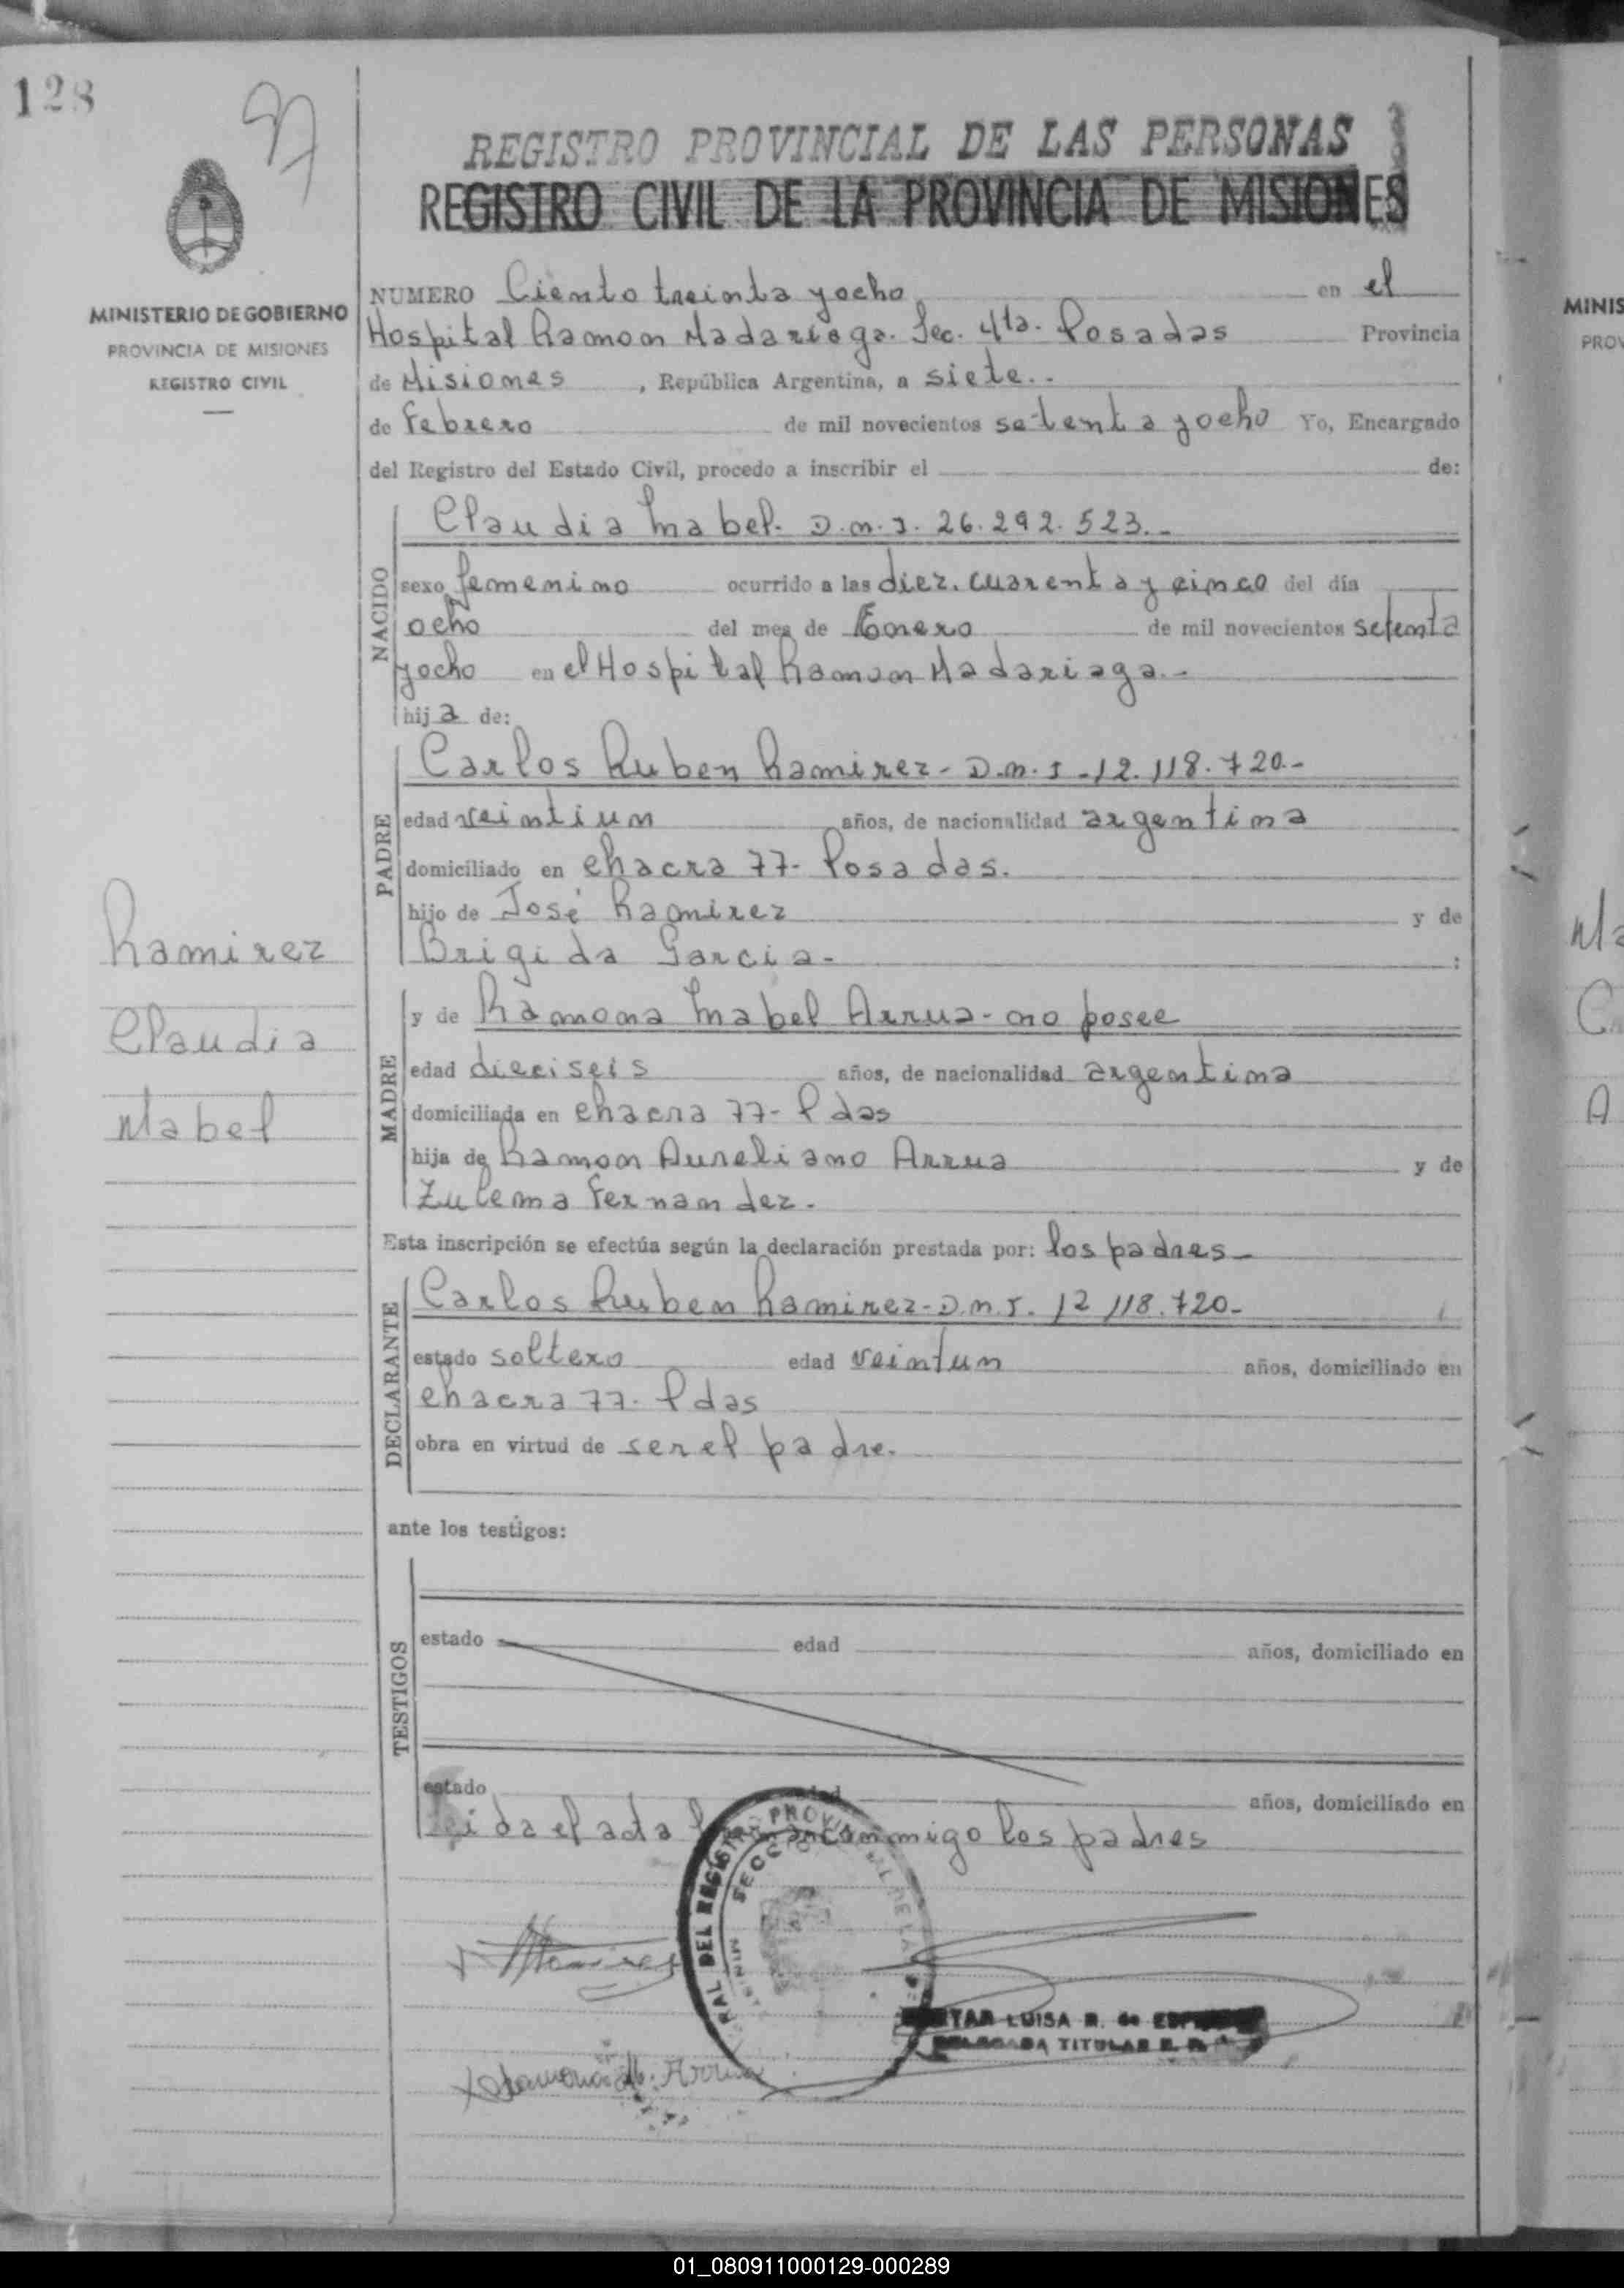 128
REGISTRO PROVINCIAL DE LAS PERSONAS
REGISTRO CIVIL DE LA PROVINCIA DE MISIONES
MINISTERIO DE GOBIERNO
PROVINCIA DE MISIONES
REGISTRO CIVIL
Ramirez
Claudia
Mabel
NUMERO Ciento treinta y ocho en el
Hospital Ramon Madariaga. Sec. 4ta. Posadas Provincia
de Misiones , República Argentina, a siete..
de Febrero de mil novecientos setenta y ocho Yo, Encargado
del Registro del Estado Civil, procedo a inscribir el de:
NACIDO
Claudia Mabel. D.N.I. 26.292.523.-
sexo femenino ocurrido a las diez. cuarenta y cinco del día
ocho del mes de Enero de mil novecientos setenta
y ocho en el Hospital Ramon Madariaga.-
hij a de:
PADRE
Carlos Ruben Ramirez - D.N.I - 12.118.720.-
edad veintiun años, de nacionalidad argentina
domiciliado en chacra 77- Posadas.
hijo de José Ramirez y de
Brigida Garcia- :
MADRE
y de Ramona Mabel Arrua - no posee
edad dieciseis años, de nacionalidad argentina
domiciliada en chacra 77- Pdas
hija de Ramon Aureliano Arrua y de
Zulema Fernandez.
Esta inscripción se efectúa según la declaración prestada por: los padres-
DECLARANTE
Carlos Ruben Ramirez - D.N.I. 12 118.720-
estado soltero edad veintun años, domiciliado en
chacra 77. Pdas
obra en virtud de ser el padre.
ante los testigos:
TESTIGOS
estado edad años, domiciliado en
estado edad años, domiciliado en
Leida el acta conmigo los padres
Ramirez
LUISA R. de
DELEGADA TITULAR
Ramona M. Arrua
MINIS
PROV
Ma
C
A
01_080911000129-000289